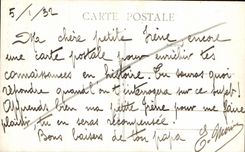 5/1/32
CARTE POSTALE
Ma chère petite Irène, encore
une carte postale pour enrichir tes
connaissances en histoire. Tu sauras quoi
répondre quand on t'interogera sur ce sujet!
Apprends bien ma petite Irène pour me faire
plaisir tu en seras récompensée.
Bons baisers de ton papa